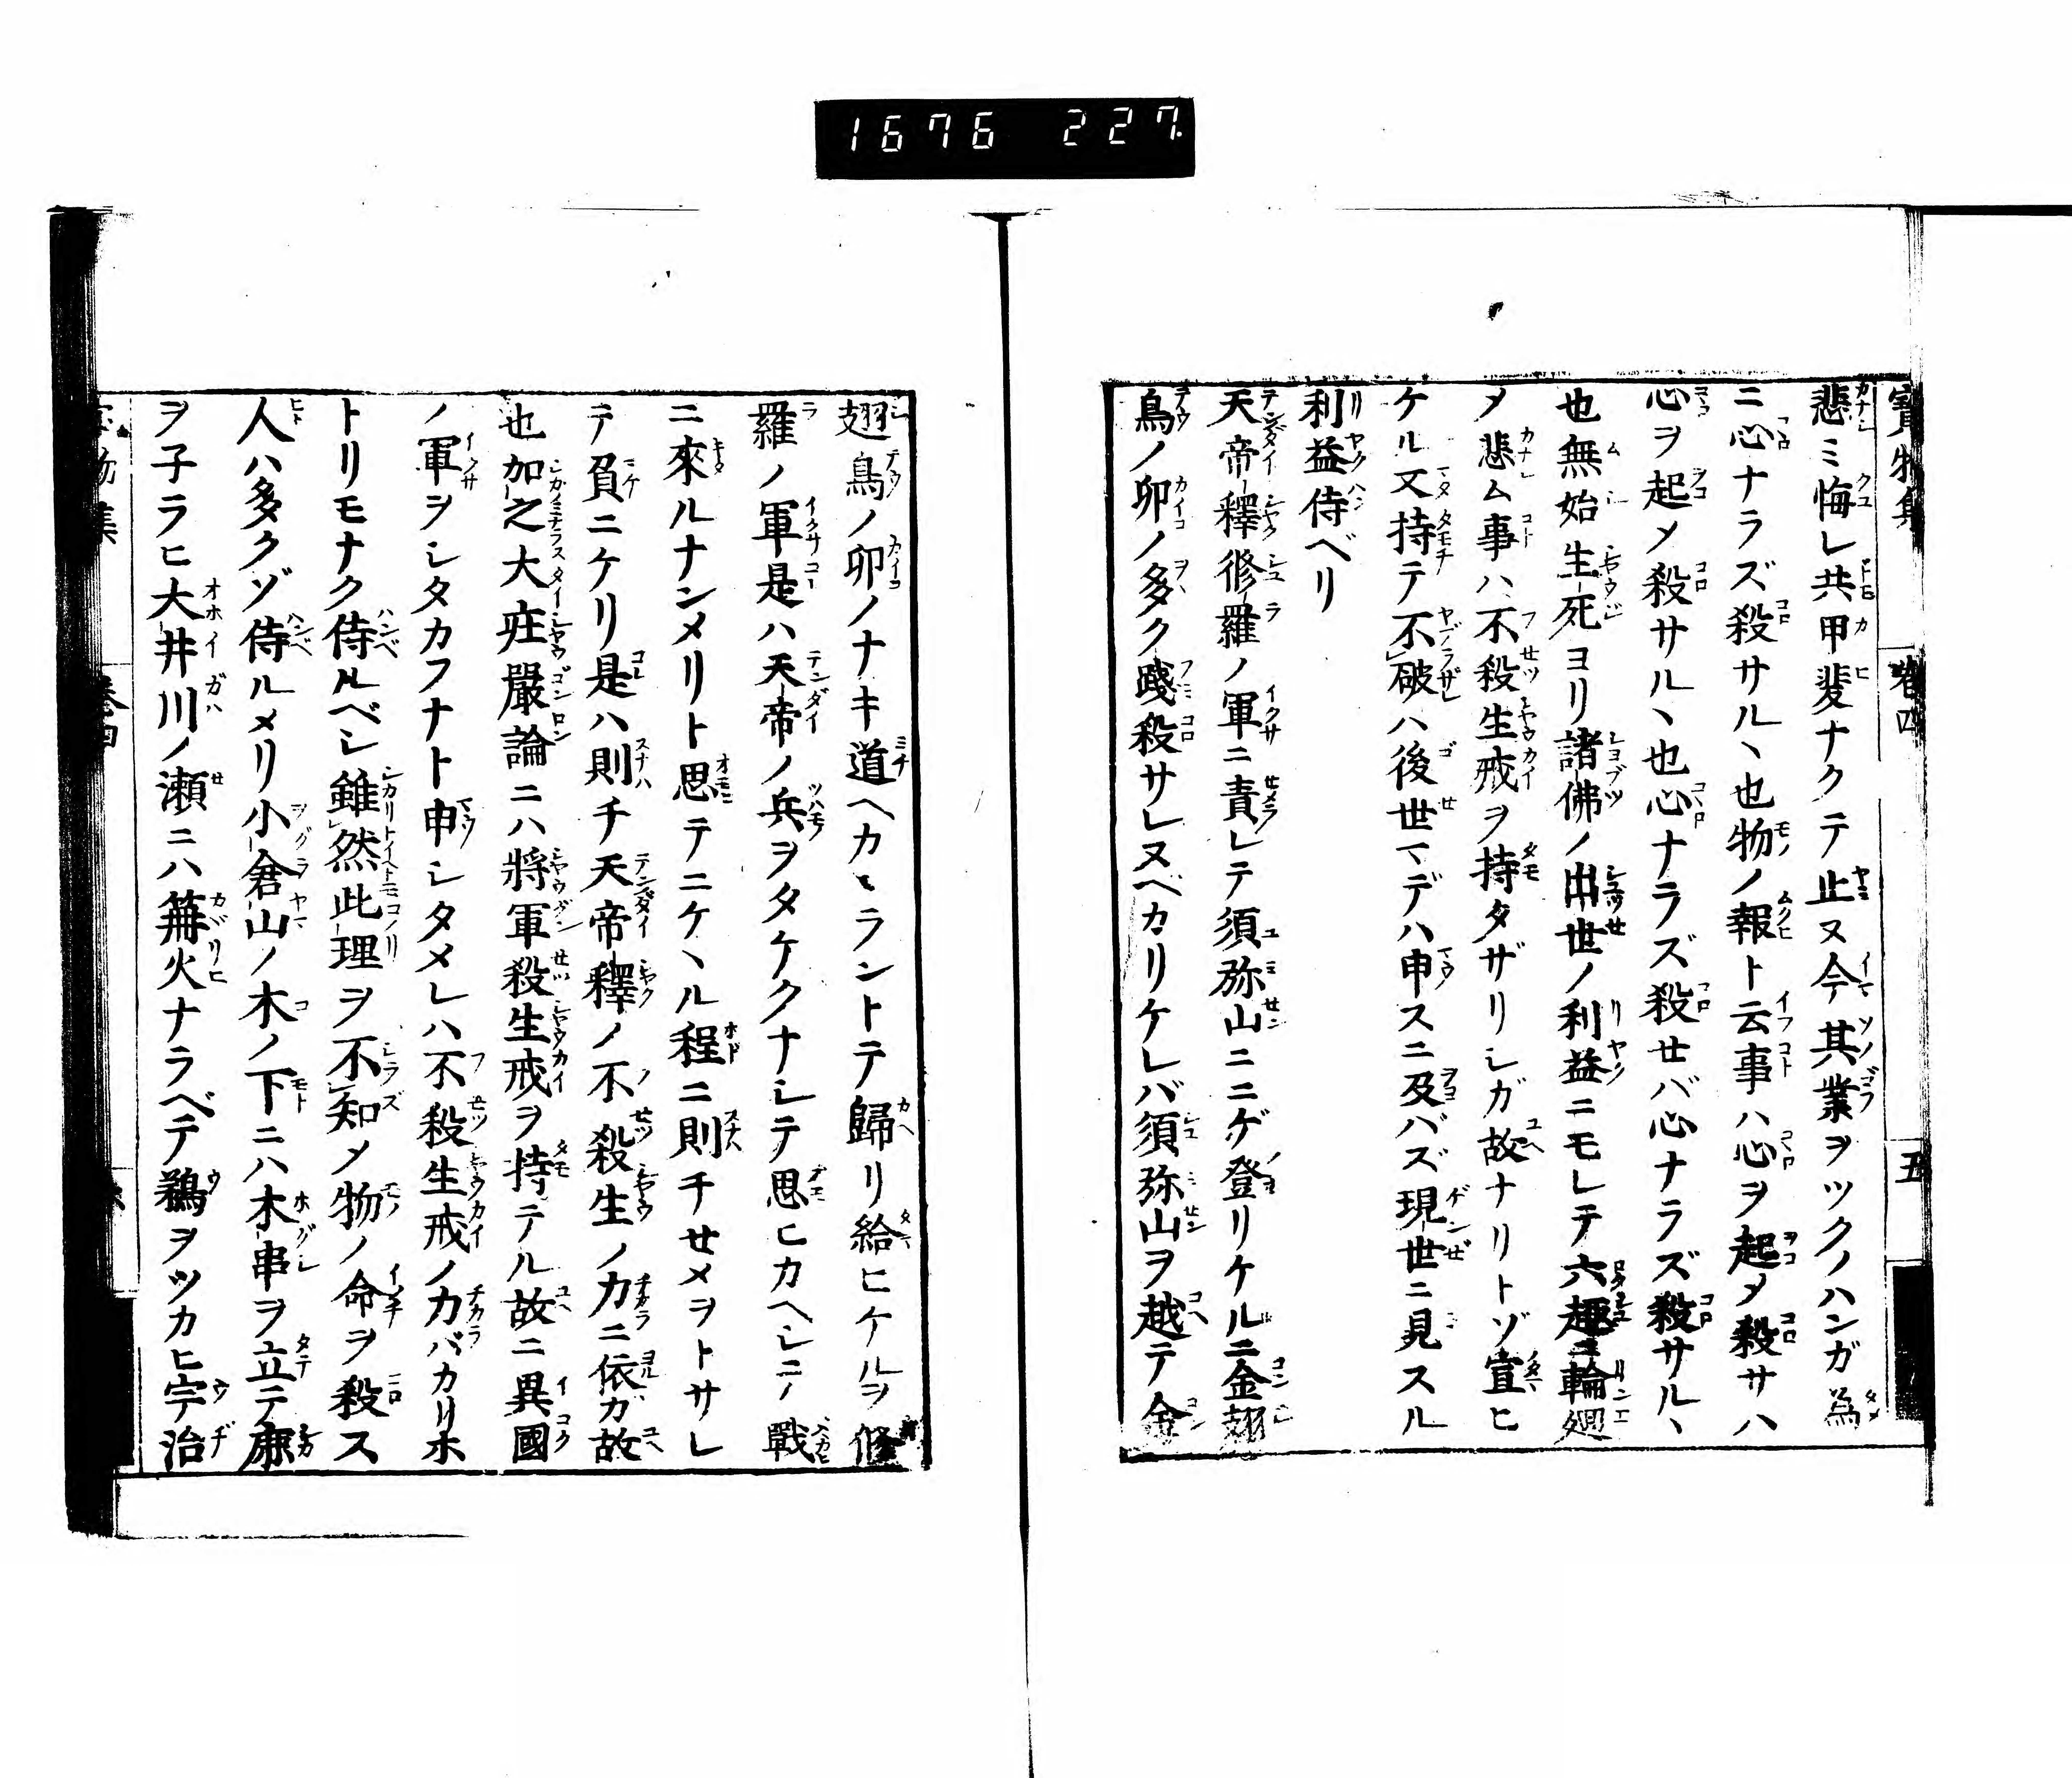 1676 227.
寶物集 卷四 五
悲ミ悔レ共甲斐ナクテ止ヌ今其業ヲツクノハンガ為
ニ心ナラズ殺サルヽ也物ノ報ト云事ハ心ヲ起〆殺サハ
心ヲ起〆殺サルヽ也心ナラズ殺セバ心ナラズ殺サルヽ
也無始生死ヨリ諸佛ノ出世ノ利益ニモレテ六趣ニ輪廻
〆悲ム事ハ不殺生戒ヲ持タザリシガ故ナリトゾ宣ヒ
ケル又持テ不破ハ後世マデハ申スニ及バズ現世ニ見スル
利益侍ベリ
天帝釋修羅ノ軍ニ責レテ須弥山ニニゲ登リケルニ金翅
鳥ノ卵ノ多ク踐殺サレヌベカリケレバ須弥山ヲ越テ金
翅鳥ノ卵ノナキ道ヘカヽラントテ歸リ給ヒケルヲ修
羅ノ軍是ハ天帝ノ兵ヲタケクナシテ思ヒカヘシニノ戰
ニ來ルナンメリト思テニケヽル程ニ則チせメヲトサレ
テ負ニケリ是ハ則チ天帝釋ノ不殺生ノ力ニ依ガ故
也加之大莊嚴論ニハ將軍殺生戒ヲ持テル故ニ異國
ノ軍ヲシタカフナト申シタメレハ不殺生戒ノ力バカリホ
トリモナク侍ルベシ雖然此理ヲ不知〆物ノ命ヲ殺ス
人ハ多クゾ侍ルメリ小倉山ノ木ノ下ニハ木串ヲ立テ鹿
ヲ子ラヒ大井川ノ瀬ニハ篝火ナラベテ鵜ヲツカヒ宇治